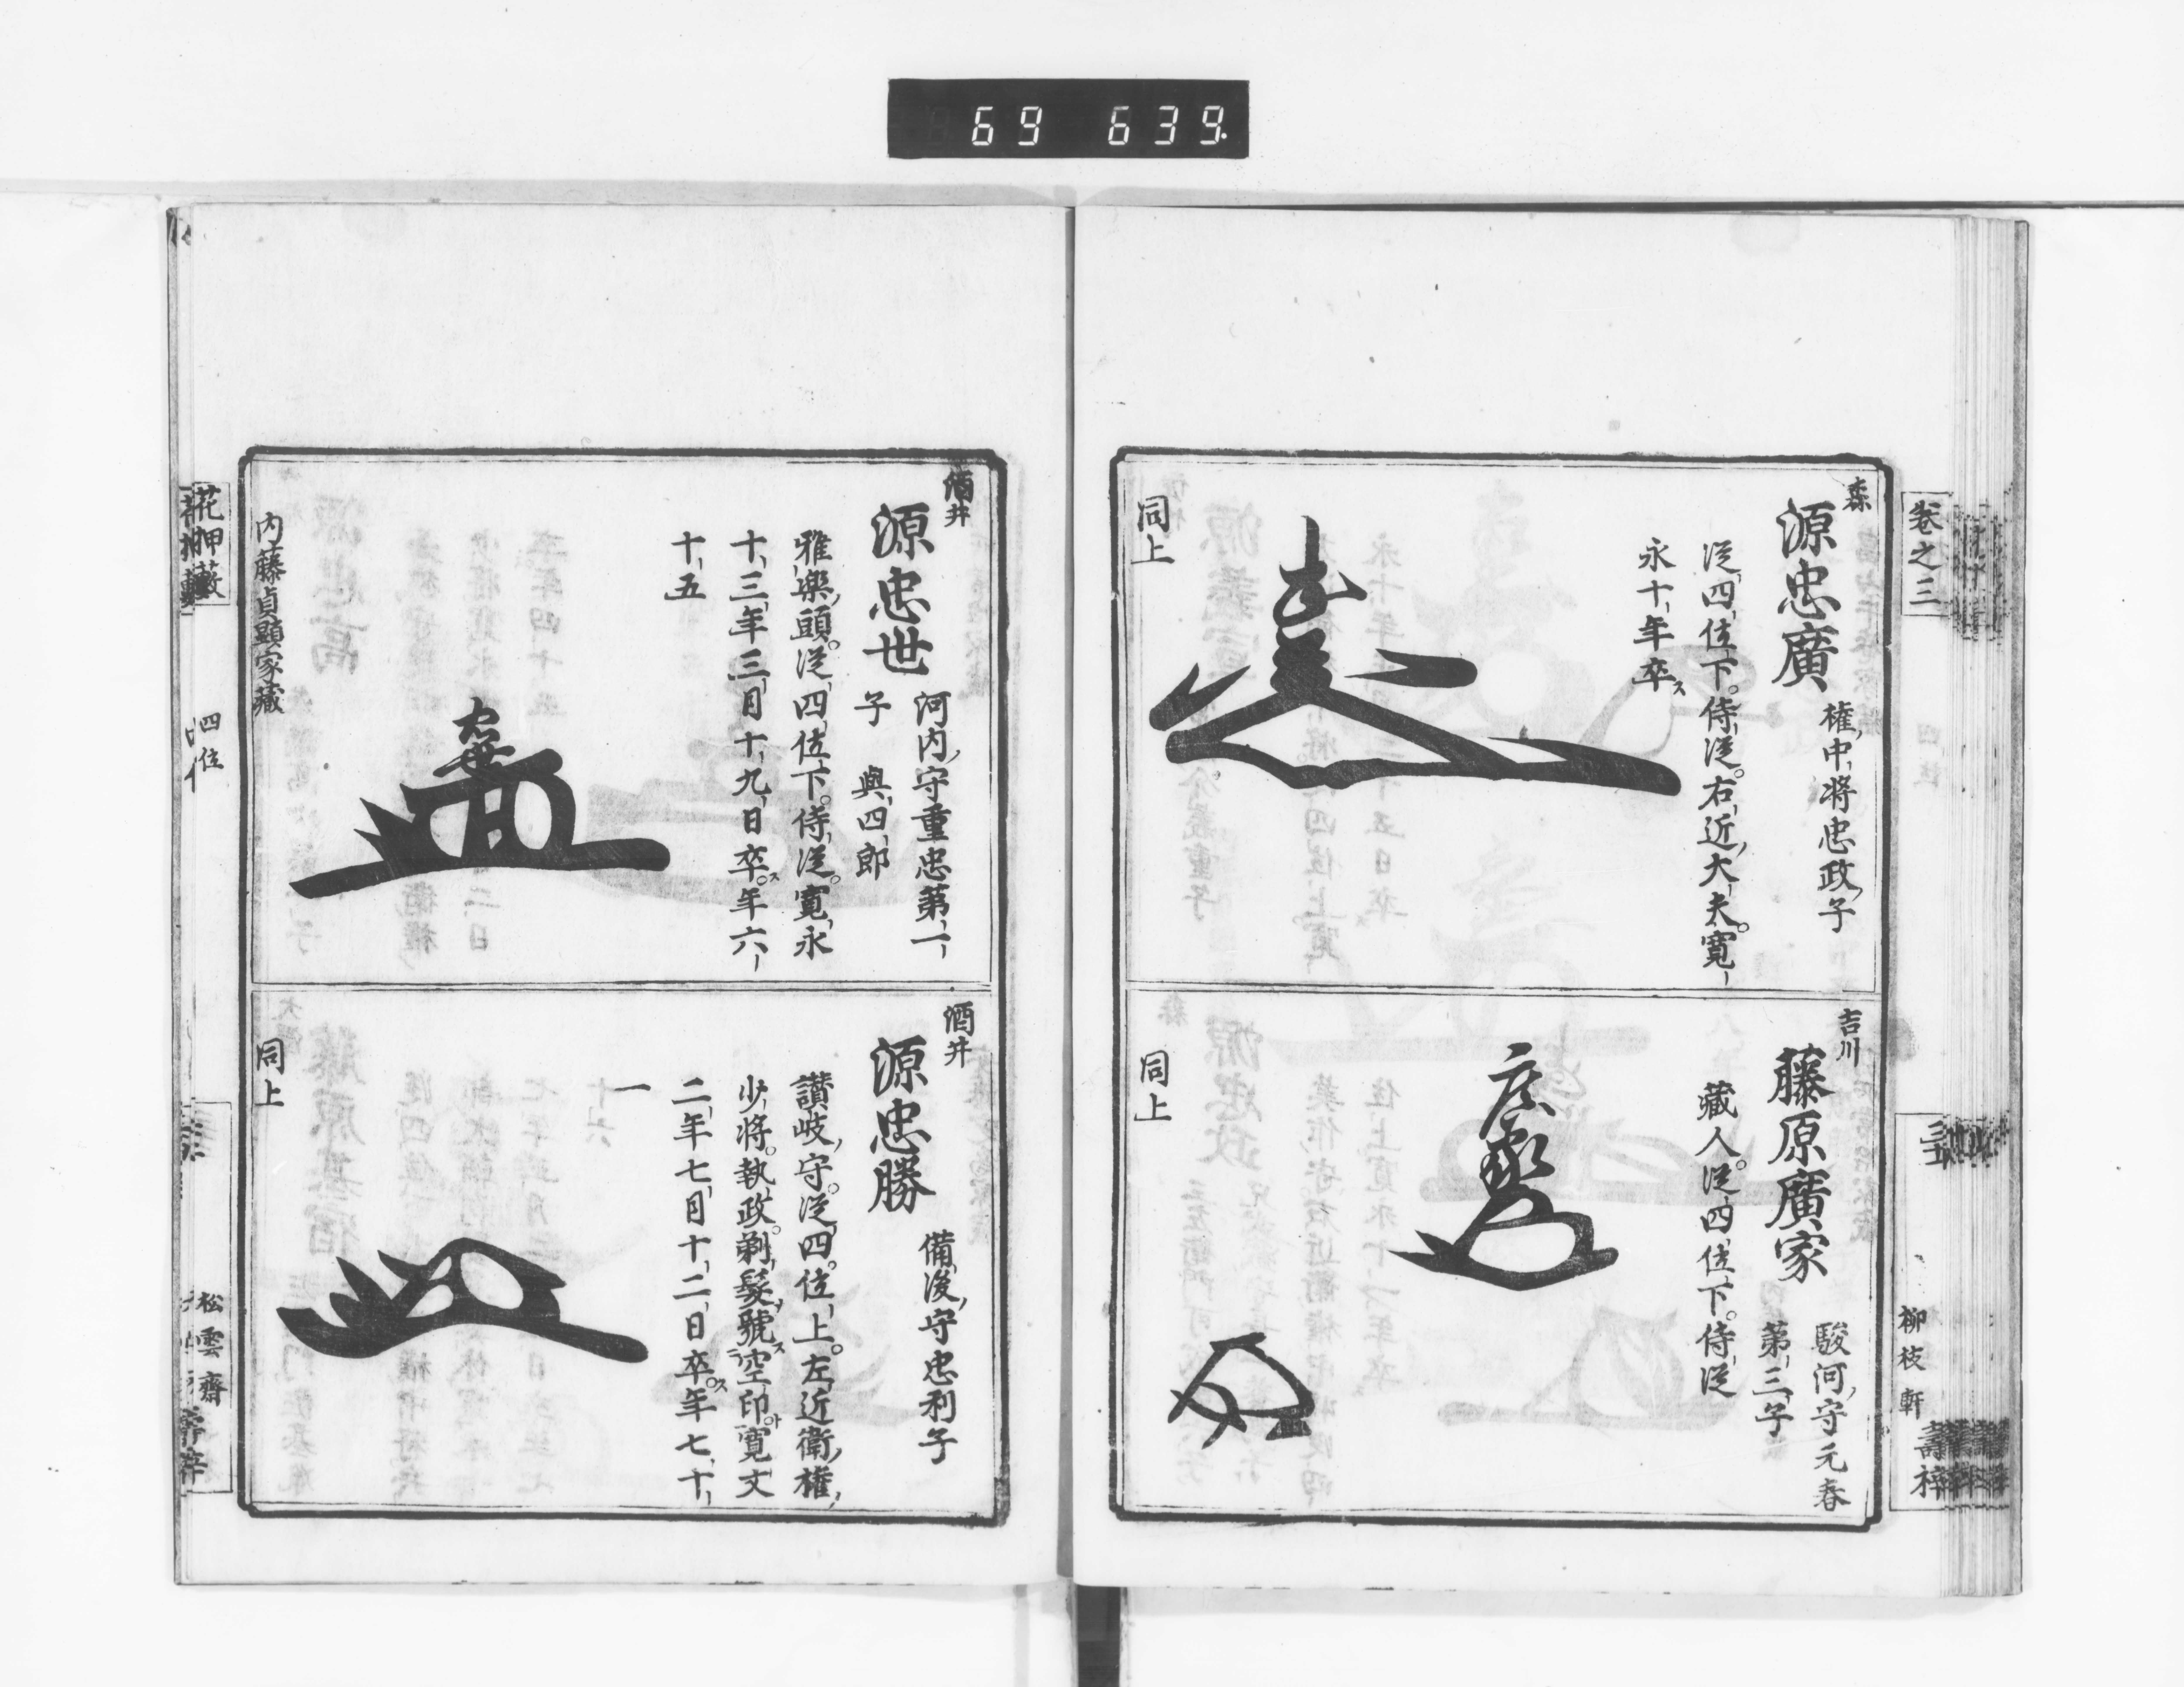 69 639.
卷之三
三
柳枝軒
壽梓
森
源忠廣
權中將忠政子
從四位下。侍從。右近大夫。寛
永十年卒ス
同上
吉川
藤原廣家
駿河守元春
第三子
藏人。從四位下。侍從
同上
酒井
源忠世
河内守重忠第一
子 與四郎
雅樂頭。從四位下。侍從。寛永
十三年三月十九日卒ス。年六
十五
内藤貞顯家藏
酒井
源忠勝
備後守忠利子
讃岐守。從四位上。左近衛權
少將。執政。剃髮號ス空印ト寛文
二年七月十二日卒ス。年七十
一
同上
花押藪
四位
松雲齋